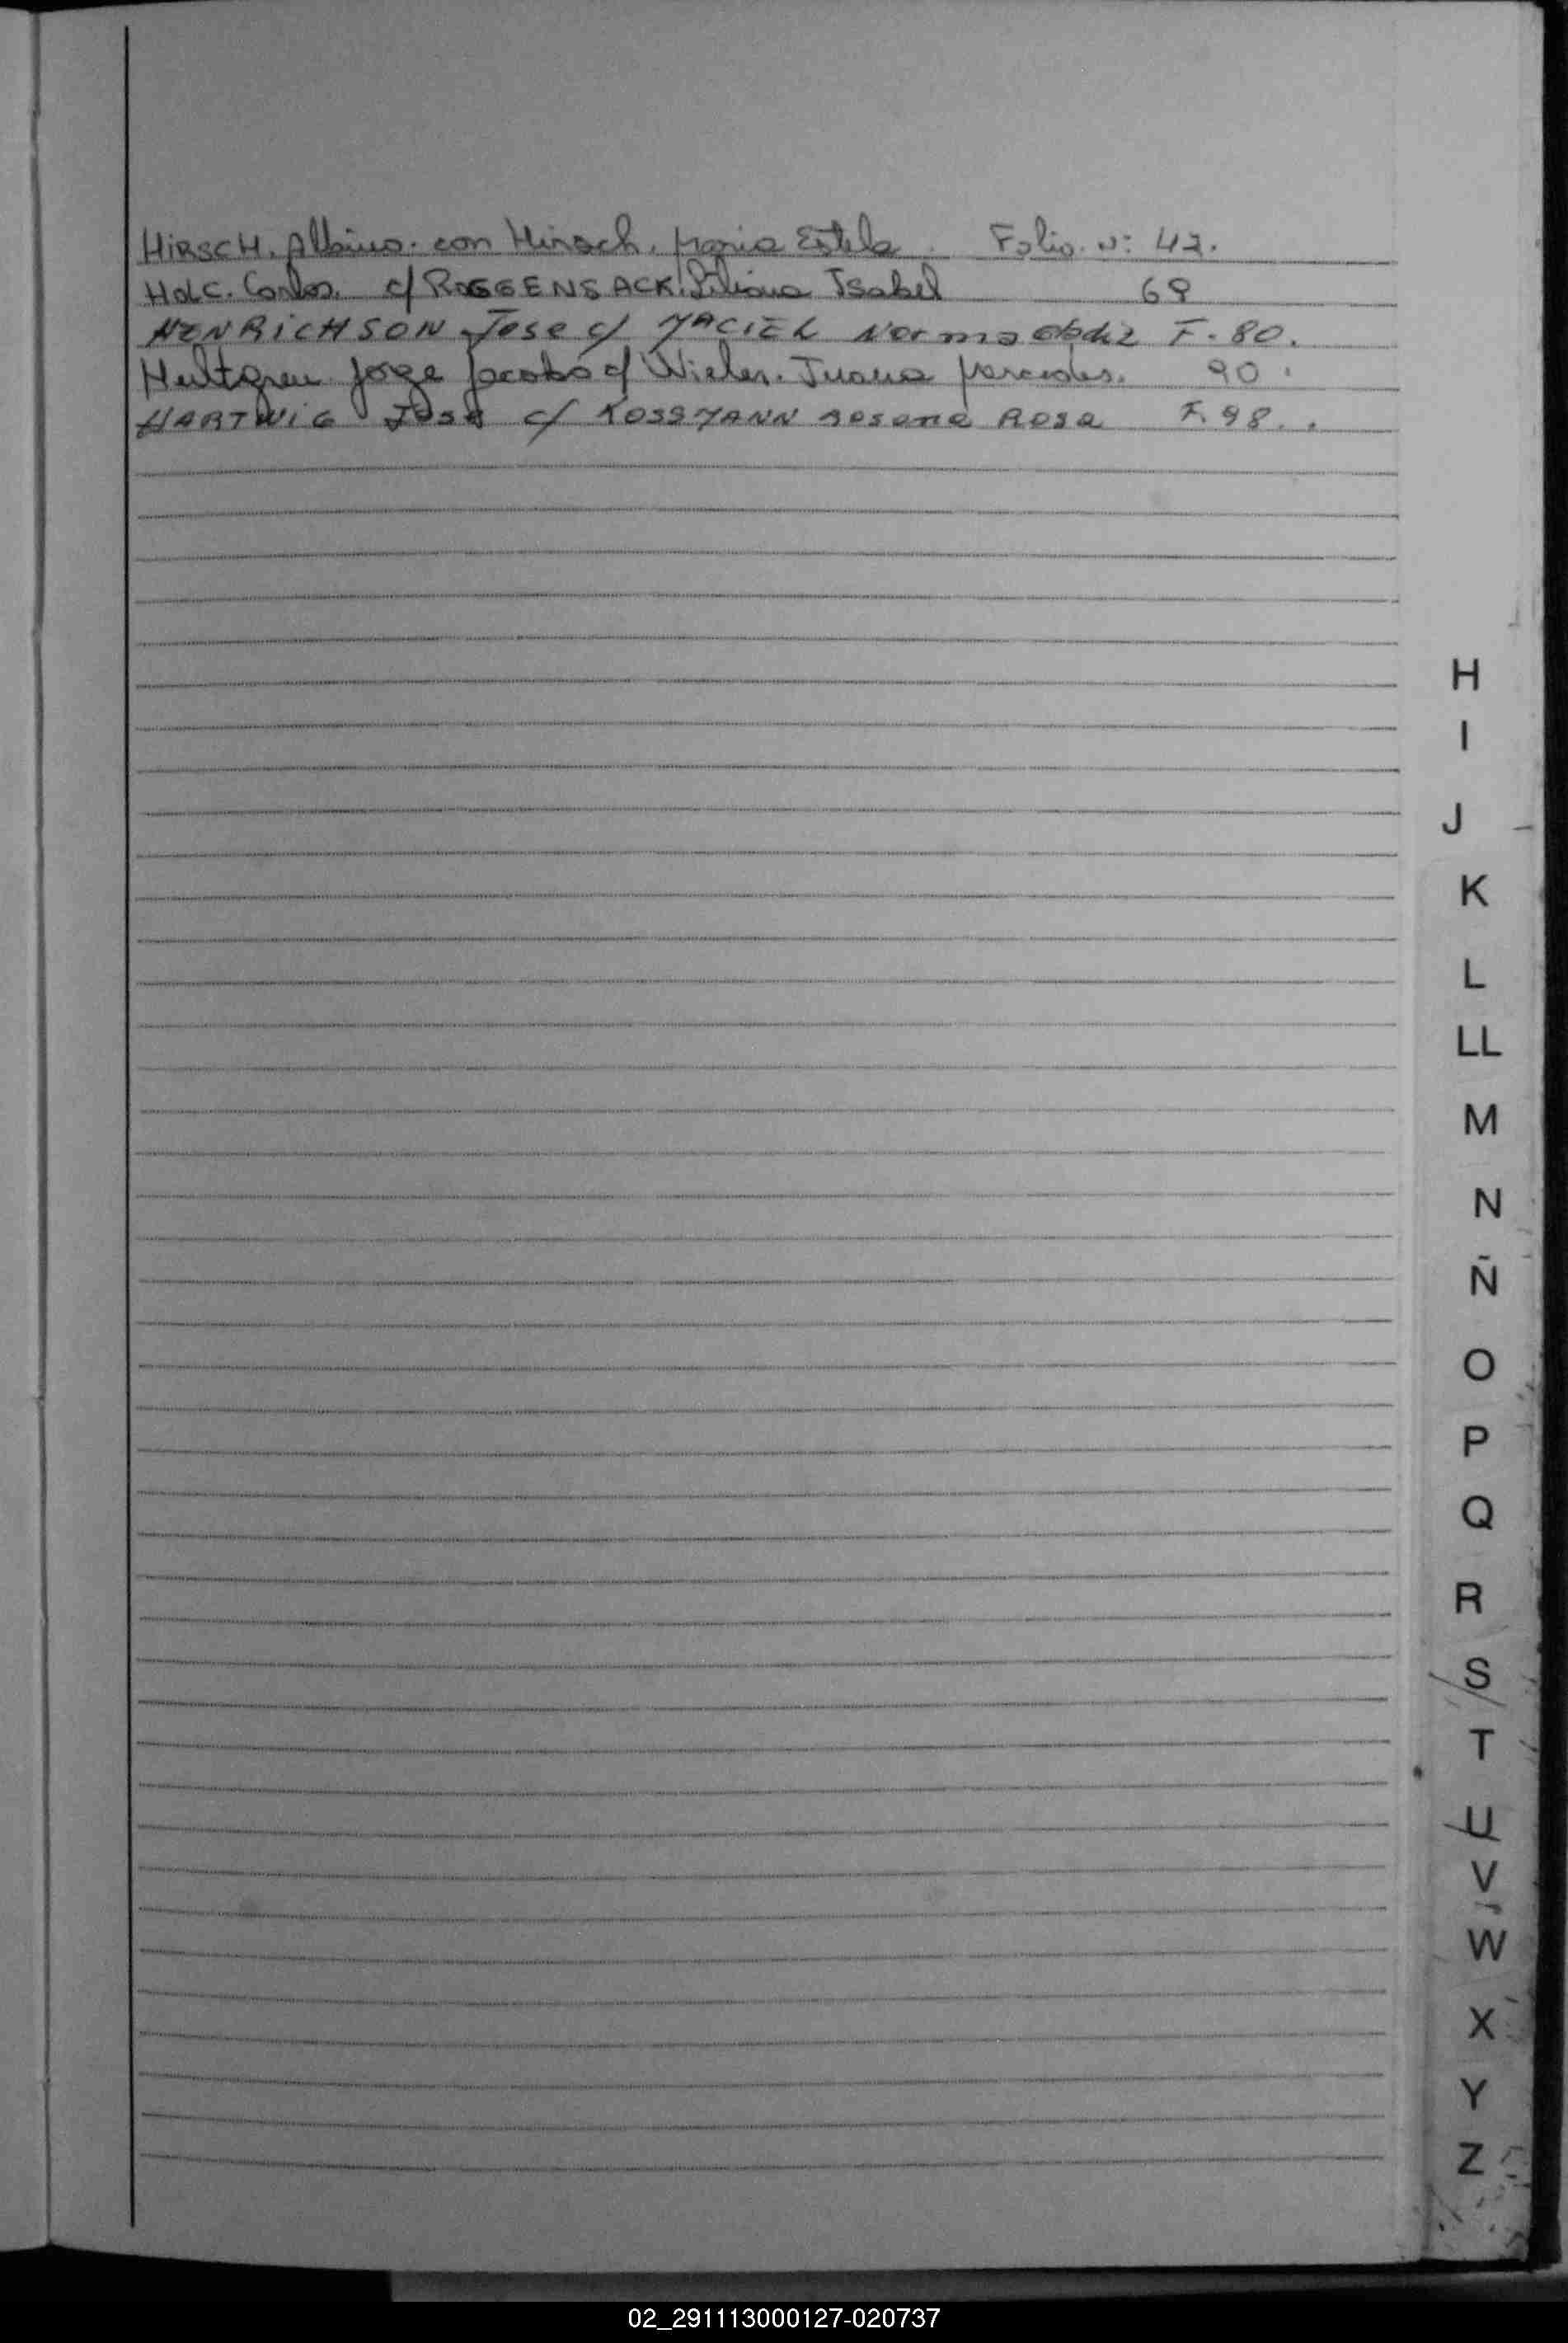 HIRSCH. Albino. con Hirsch. Maria Estela. Folio. N: 42.
HOLC. Carlos. c/ ROGGENSACK. Liliana Isabel 69
HENRICHSON Jose c/ MACIEL Norma F. 80.
Hultgren Jorge Jacobo c/ Wieler. Juana Mercedes. 90.
HARTWIG Jose c/ KOSSMANN Rosa F. 98.
H
I
J
K
L
LL
M
N
Ñ
O
P
Q
R
S
T
U
V
W
X
Y
Z
02_291113000127-020737